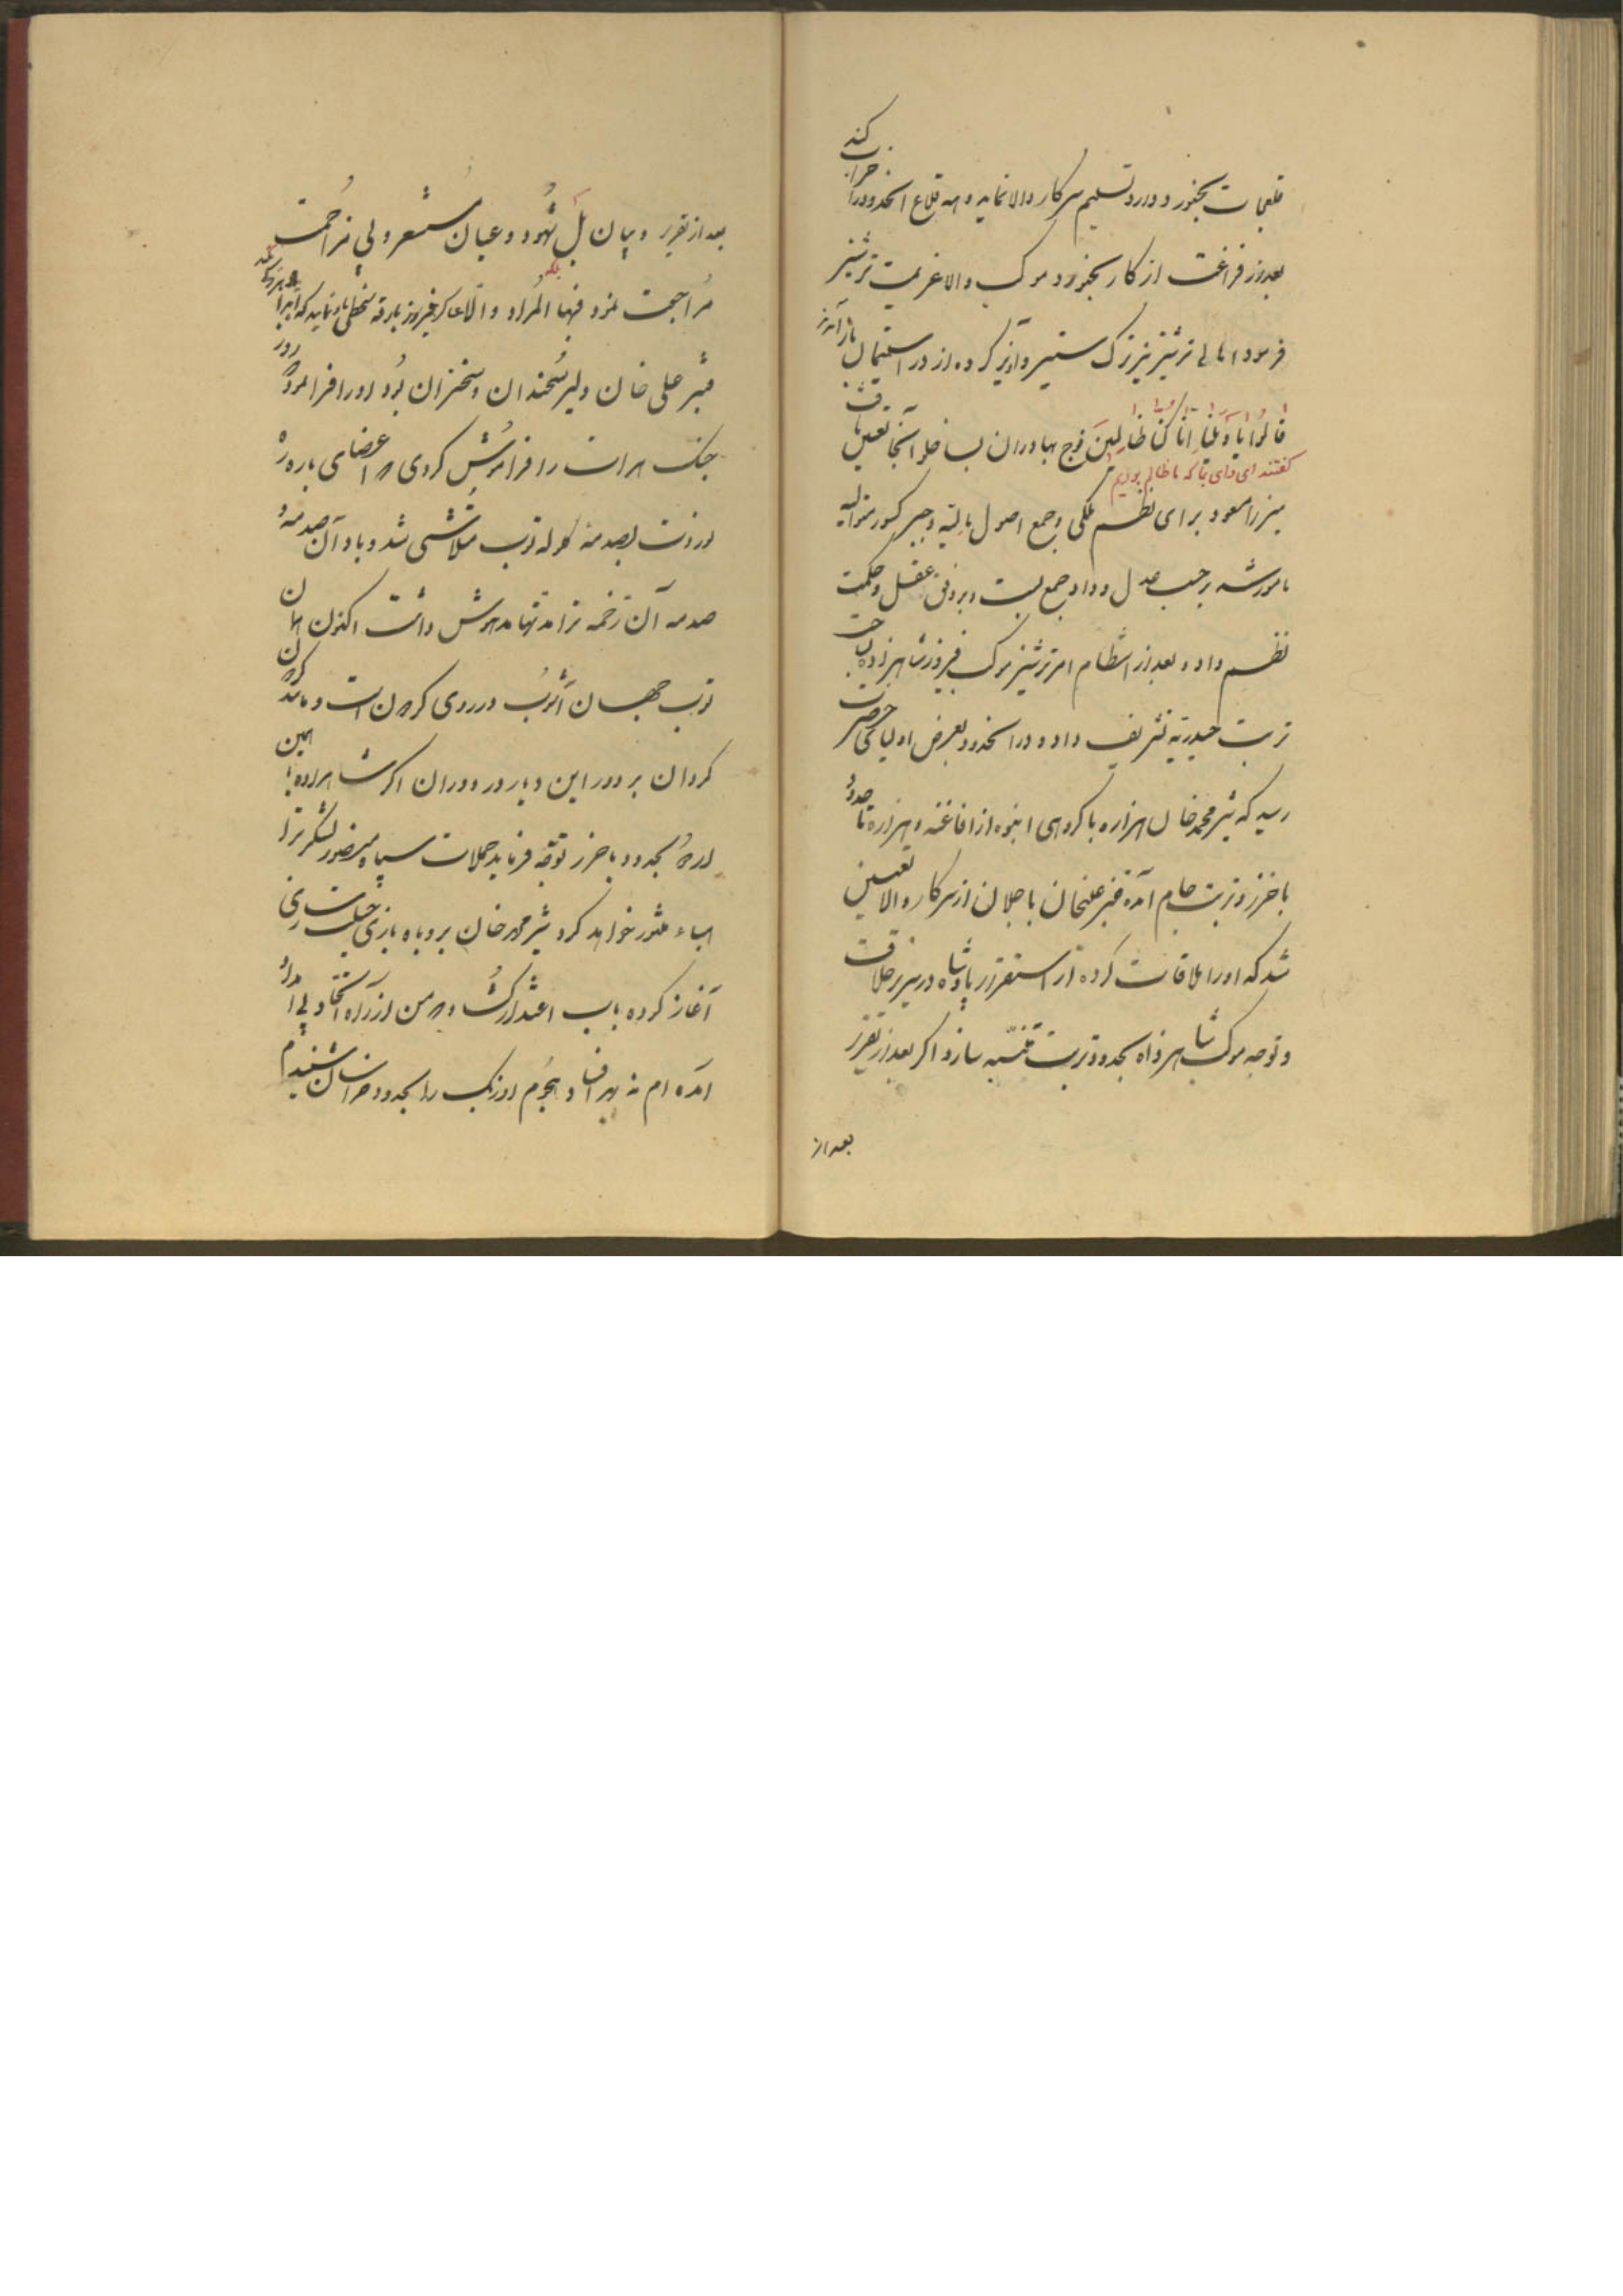 قلعجات بجنورد دارد تسلیم سرکار والا نماید و همه قلاع انحدود را خراب کند
بعد از فراغت از کار بجنورد موکب والا عزیمت ترشیز
فرمود اهالی ترشیز نیز ترک ستیز و آویز کرده از در استیمال باز آمدند
قالُوا یا وَیلَنا اِنّا کُنّا ظالِمینَ فوج بهادران بساخلو آنجا تعیین یافت
گفتند ای وای بما که ما ظالم بودیم
میرزا مسعود برای نظم ملکی و جمع اصول مالیه و جبر کسور متوالیه
مامور شد بر حسب عدل و داد جمع بست و بر وفق عقل و حکمت
نظم داد و بعد از انتظام امر ترشیز موکب فیروز شاهزاده بجانب
تربت حیدریه تشریف داد و در انحدود بعرض اولیای حضرت
رسید که شیر محمد خان هزاره با گروهی انبوه از افاغنه و هزاره تا حدود
باخرز و تربت جام آمده قنبر علیخان با جلان از سرکار والا تعیین
شد که او را ملاقات کرده از استقرار پادشاه در سریر خلافت
و توجه موکب شاهزاده بحدود تربت متنبه سازد اگر بعد از تقریر
بعد از
بعد از تقریر و بیان بل شُهود و عیان مُستشعر و بی مزاحمت
بلکه
مُراجعت نمود فبها المُراد والّا عساکر فیروز
قنبر علی خان دلیر سُخندان و سخنران بُود او را فرا
جنک هرات را فراموُش کردی که اعضای پاره
اوردت بصدمه کلوله توپ متلاشی شد و باد آن صدمه و
صدمه آن زخمه ترا مدتها مدهوش داشت اکنون همان
توپ جهان آشوُب در روی کردون است و مانند کردون
کردان بر دور این دیار و دوران اگر شاهزاده
بحدود باخرز توجه فرماید حملات سپاه منصور لشکر ترا
هباء منثور خواهد کرد شیر محمد خان بروباه بازی حیلت سازی
آغاز کرده باب اعتذار کشُاد که من از راه اتحاد
آمده ام نه بهر افساد و هجُوم اوزبک را بحدود خراسان شنیدم